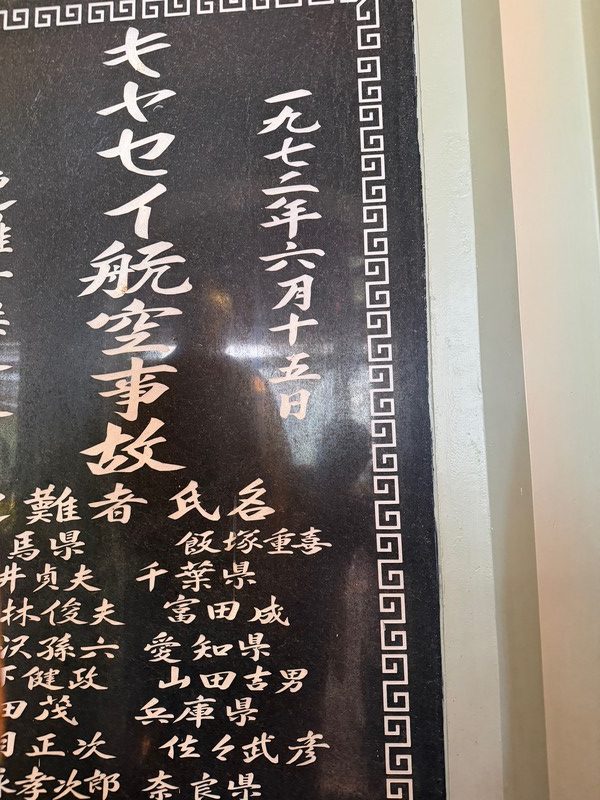 一九七二年六月十五日
キヤセイ航空事故
難者氏名
馬県 飯塚重喜
井貞夫 千葉県
林俊夫 富田成
沢孫六 愛知県
健政 山田吉男
田茂 兵庫県
正次 佐々武彦
孝次郎 奈良県